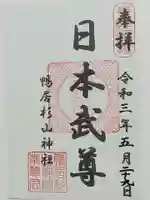 奉拝
令和三年五月二十九日
日本武尊
鴨居杉山神社